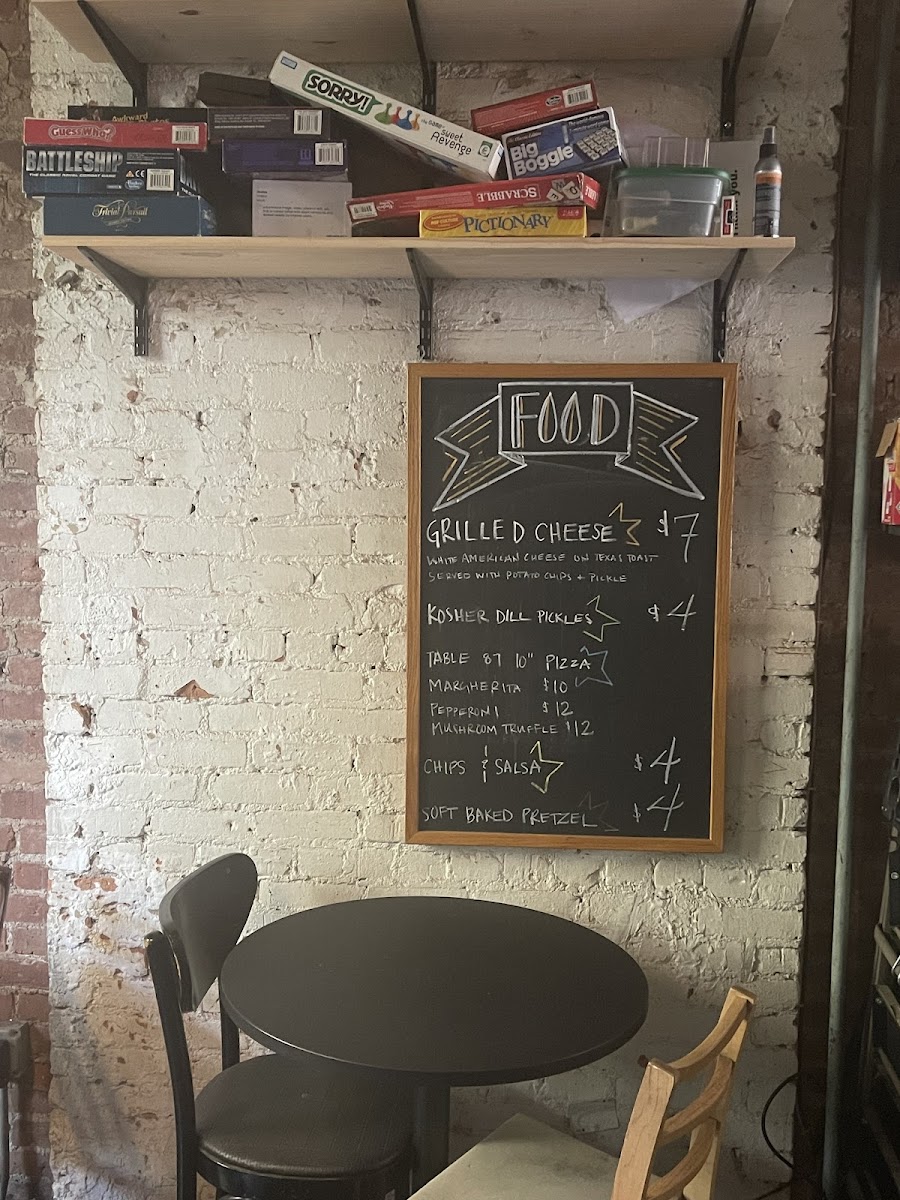 SORRY!
the GAME of
Sweet
Revenge
Awkward
GUESS WHO?
BATTLESHIP
Trivial Pursuit
Big
Boggle
SCRABBLE
PICTIONARY
you.
FOOD
GRILLED CHEESE $7
WHITE AMERICAN CHEESE ON TEXAS TOAST
SERVED WITH POTATO CHIPS + PICKLE
KOSHER DILL PICKLES $4
TABLE 87 10" PIZZA
MARGHERITA $10
PEPPERONI $12
MUSHROOM TRUFFLE $12
CHIPS & SALSA $4
SOFT BAKED PRETZEL $4